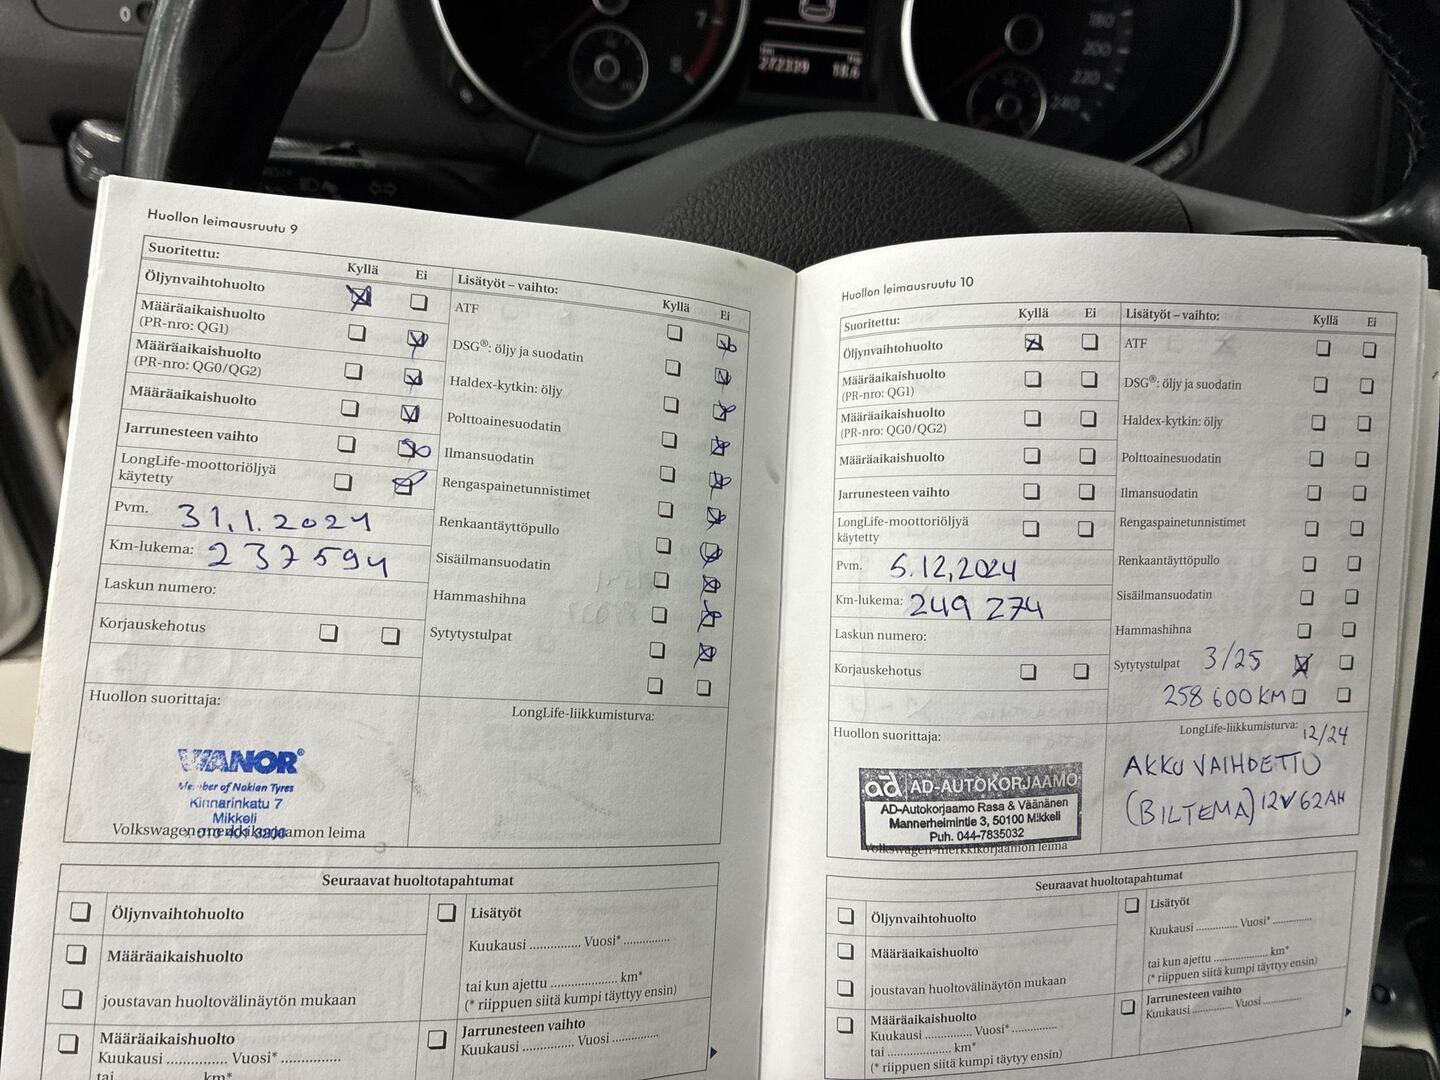 7
8
272339 18.6
180
200
220
240
Huollon leimausruutu 9
Suoritettu:
Kyllä Ei
Öljynvaihtohuolto
Määräaikaishuolto
(PR-nro: QG1)
Määräaikaishuolto
(PR-nro: QG0/QG2)
Määräaikaishuolto
Jarrunesteen vaihto
LongLife-moottoriöljyä
käytetty
Pvm. 31.1.2024
Km-lukema: 237594
Laskun numero:
Korjauskehotus
Lisätyöt – vaihto:
Kyllä Ei
ATF
DSG®: öljy ja suodatin
Haldex-kytkin: öljy
Polttoainesuodatin
Ilmansuodatin
Rengaspainetunnistimet
Renkaantäyttöpullo
Sisäilmansuodatin
Hammashihna
Sytytystulpat
Huollon suorittaja:
VIANOR®
Member of Nokian Tyres
Kinnarinkatu 7
Mikkeli
Volkswagen-merkkikorjaamon leima
LongLife-liikkumisturva:
Seuraavat huoltotapahtumat
Öljynvaihtohuolto
Määräaikaishuolto
joustavan huoltovälinäytön mukaan
Määräaikaishuolto
Kuukausi .............. Vuosi* ..............
tai .................... km*
Lisätyöt
Kuukausi .............. Vuosi* ..............
tai kun ajettu .................... km*
(* riippuen siitä kumpi täyttyy ensin)
Jarrunesteen vaihto
Kuukausi .............. Vuosi ..............
Huollon leimausruutu 10
Suoritettu:
Kyllä Ei
Öljynvaihtohuolto
Määräaikaishuolto
(PR-nro: QG1)
Määräaikaishuolto
(PR-nro: QG0/QG2)
Määräaikaishuolto
Jarrunesteen vaihto
LongLife-moottoriöljyä
käytetty
Pvm. 5.12.2024
Km-lukema: 249 274
Laskun numero:
Korjauskehotus
Lisätyöt – vaihto:
Kyllä Ei
ATF
DSG®: öljy ja suodatin
Haldex-kytkin: öljy
Polttoainesuodatin
Ilmansuodatin
Rengaspainetunnistimet
Renkaantäyttöpullo
Sisäilmansuodatin
Hammashihna
Sytytystulpat 3/25
258 600 KM
Huollon suorittaja:
ad AD-AUTOKORJAAMO
AD-Autokorjaamo Rasa & Väänänen
Mannerheimintie 3, 50100 Mikkeli
Puh. 044-7835032
Volkswagen-merkkikorjaamon leima
LongLife-liikkumisturva: 12/24
AKKU VAIHDETTU
(BILTEMA) 12V 62AH
Seuraavat huoltotapahtumat
Öljynvaihtohuolto
Määräaikaishuolto
joustavan huoltovälinäytön mukaan
Määräaikaishuolto
Kuukausi .............. Vuosi* ..............
tai .................... km*
(* riippuen siitä kumpi täytyy ensin)
Lisätyöt
Kuukausi .............. Vuosi* ..............
tai kun ajettu .................... km*
(* riippuen siitä kumpi täyttyy ensin)
Jarrunesteen vaihto
Kuukausi .............. Vuosi ..............